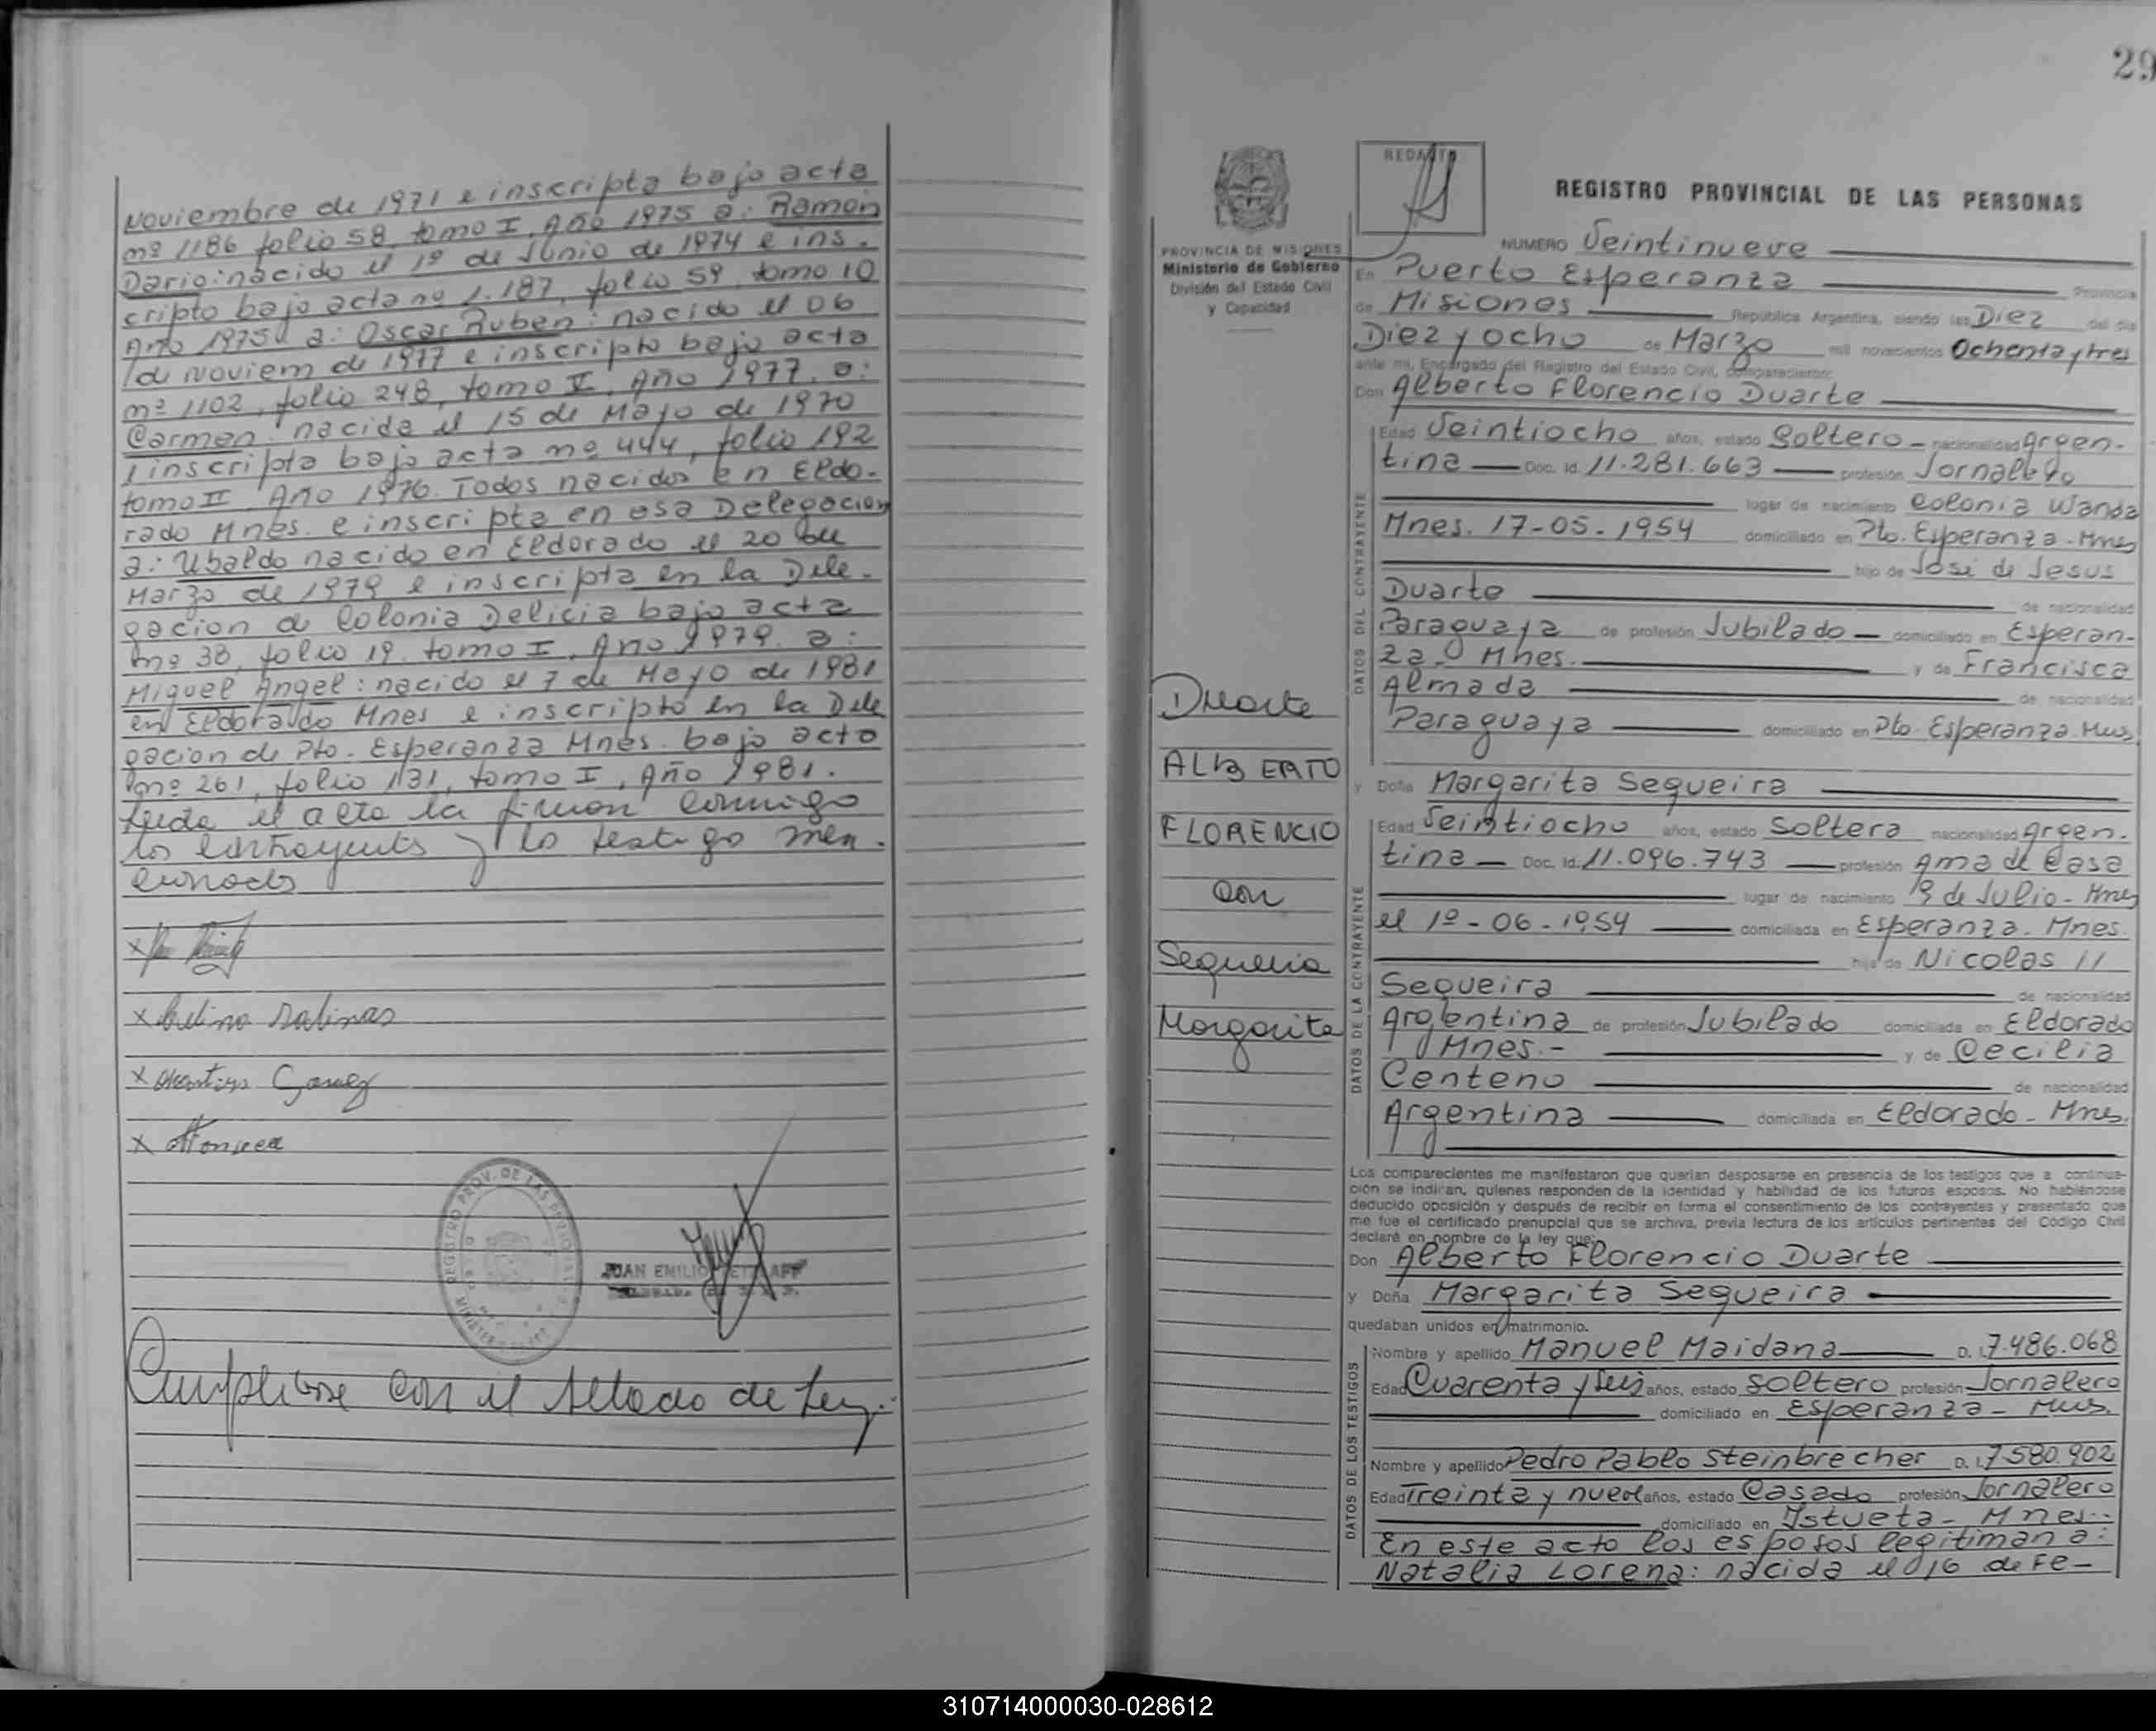 Noviembre de 1971 e inscripta bajo acta
nº 1186 folio 58, tomo I, Año 1975 a: Ramon
Dario: nacido el 1º de Junio de 1974 e ins-
cripto bajo acta nº 1.187, folio 59, tomo 10
Año 1975 a: Oscar Ruben: nacido el 06
de Noviem de 1977 e inscripto bajo acta
nº 1102, folio 248, tomo V, Año 1977. a:
Carmen: nacida el 15 de Mayo de 1970
e inscripta bajo acta nº 444, folio 192
tomo II Año 1976. Todos nacidos en Eldo-
rado Mnes. e inscripta en esa Delegacion
a: Ubaldo nacido en Eldorado el 20 de
Marzo de 1979 e inscripta en la Dele-
gacion de Colonia Delicia bajo acta
nº 38, folio 19. tomo I, Año 1979. a:
Miguel Angel: nacido el 7 de Mayo de 1981
en Eldorado Mnes e inscripto en la Dele
gacion de Pto. Esperanza Mnes. bajo acto
nº 261, folio 131, tomo I, Año 1981.
Leida el acta la firman conmigo
los contrayents y lo testigo men-
cionados
x
x Salinas
x Gomez
x
REGISTRO PROV. DE LAS PERSONAS
JUAN EMILIO
Cumplirse con el sellado de Ley.
29
REDACTO
PROVINCIA DE MISIONES
Ministerio de Gobierno
División del Estado Civil
y Capacidad
REGISTRO PROVINCIAL DE LAS PERSONAS
NUMERO Veintinueve
En Puerto Esperanza Provincia
de Misiones República Argentina, siendo las Diez del día
Diez y ocho de Marzo mil novecientos Ochenta y tres
ante mí, Encargado del Registro del Estado Civil, comparecieron:
Don Alberto Florencio Duarte
DATOS DEL CONTRAYENTE
Edad Veintiocho años, estado Soltero - nacionalidad Argen-
tina Doc. Id. 11.281.663 profesión Jornalero
lugar de nacimiento Colonia Wanda
Mnes. 17-05-1954 domiciliado en Pto. Esperanza - Mnes
hijo de José de Jesus
Duarte de nacionalidad
Paraguaya de profesión Jubilado domiciliado en Esperan-
za - Mnes. y de Francisca
Almada de nacionalidad
Paraguaya domiciliado en Pto. Esperanza Mnes
Duarte
ALBERTO
FLORENCIO
con
Sequeira
Margarita
y Doña Margarita Sequeira
DATOS DE LA CONTRAYENTE
Edad Veintiocho años, estado Soltera nacionalidad Argen-
tina Doc. Id. 11.096.743 profesión Ama de Casa
lugar de nacimiento 9 de Julio - Mnes
el 1º - 06 - 1954 domiciliada en Esperanza - Mnes.
hija de Nicolas
Sequeira de nacionalidad
Argentina de profesión Jubilado domiciliada en Eldorado
Mnes.- y de Cecilia
Centeno de nacionalidad
Argentina domiciliada en Eldorado - Mnes.
Los comparecientes me manifestaron que querían desposarse en presencia de los testigos que a continua-
ción se indican, quienes responden de la identidad y habilidad de los futuros esposos. No habiéndose
deducido oposición y después de recibir en forma el consentimiento de los contrayentes y presentado que
me fue el certificado prenupcial que se archiva, previa lectura de los artículos pertinentes del Código Civil
declaré en nombre de la ley que:
Don Alberto Florencio Duarte
y Doña Margarita Sequeira
quedaban unidos en matrimonio.
DATOS DE LOS TESTIGOS
Nombre y apellido Manuel Maidana D. I. 7.486.068
Edad Cuarenta y seis años, estado Soltero profesión Jornalero
domiciliado en Esperanza - Mnes.
Nombre y apellido Pedro Pablo Steinbrecher D. I. 7580.902
Edad Treinta y nueve años, estado Casado profesión Jornalero
domiciliado en Istueta - Mnes.-
En este acto los esposos legitiman a:
Natalia Lorena: nacida el 016 de Fe-
310714000030-028612